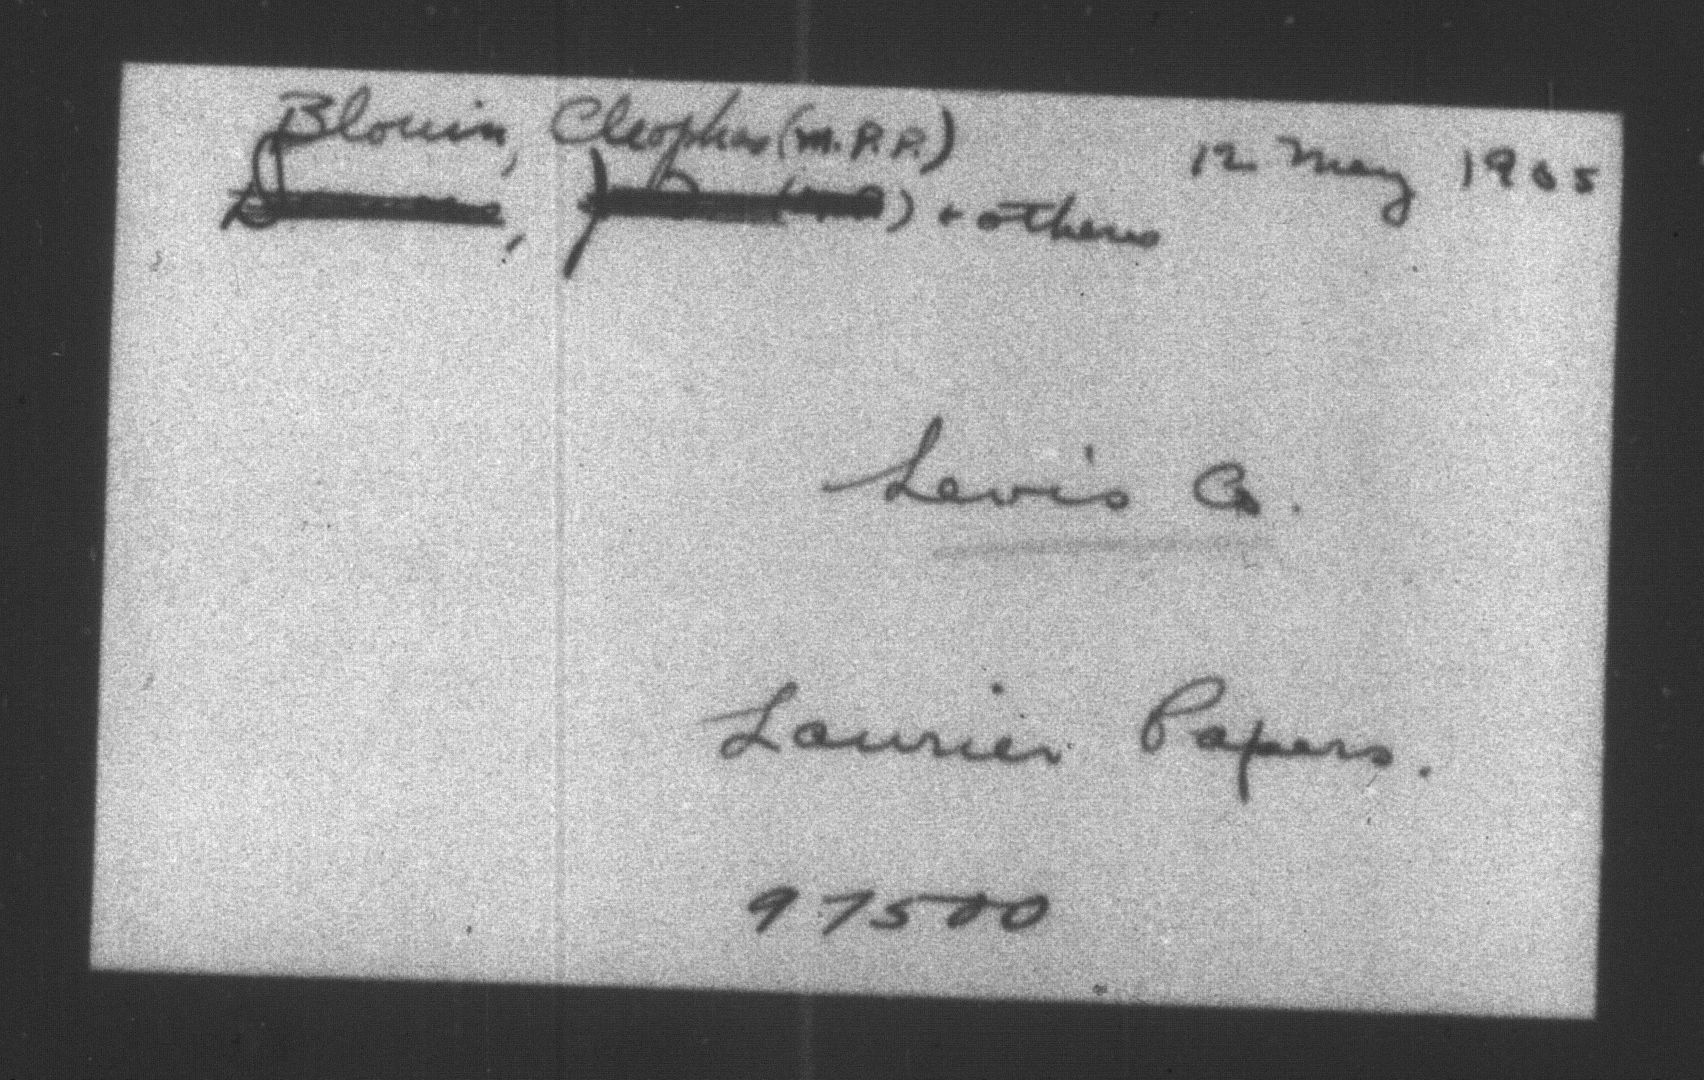 Blouin, Cleophas (M.P.P.) 12 May 1905
+ others
Levis Co.
Laurier Papers.
97500